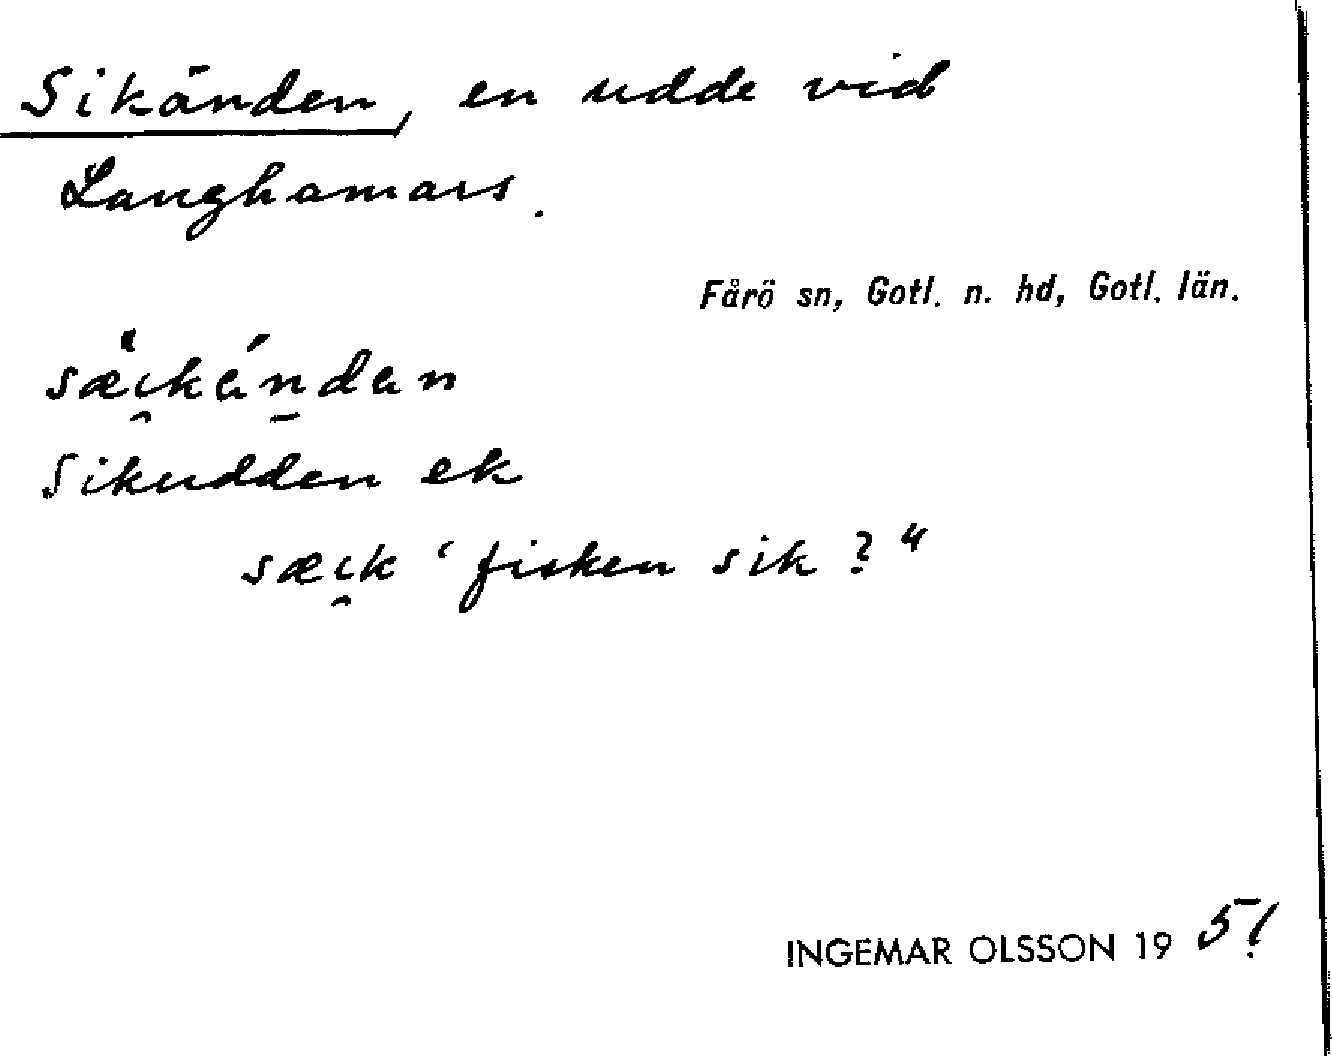 Sikänden, en udde vid
Langhamars.
Fårö sn, Gotl. n. hd, Gotl. län.
Sikudden ek
sæı̯k ‘fisken sik?“
INGEMAR OLSSON 1951